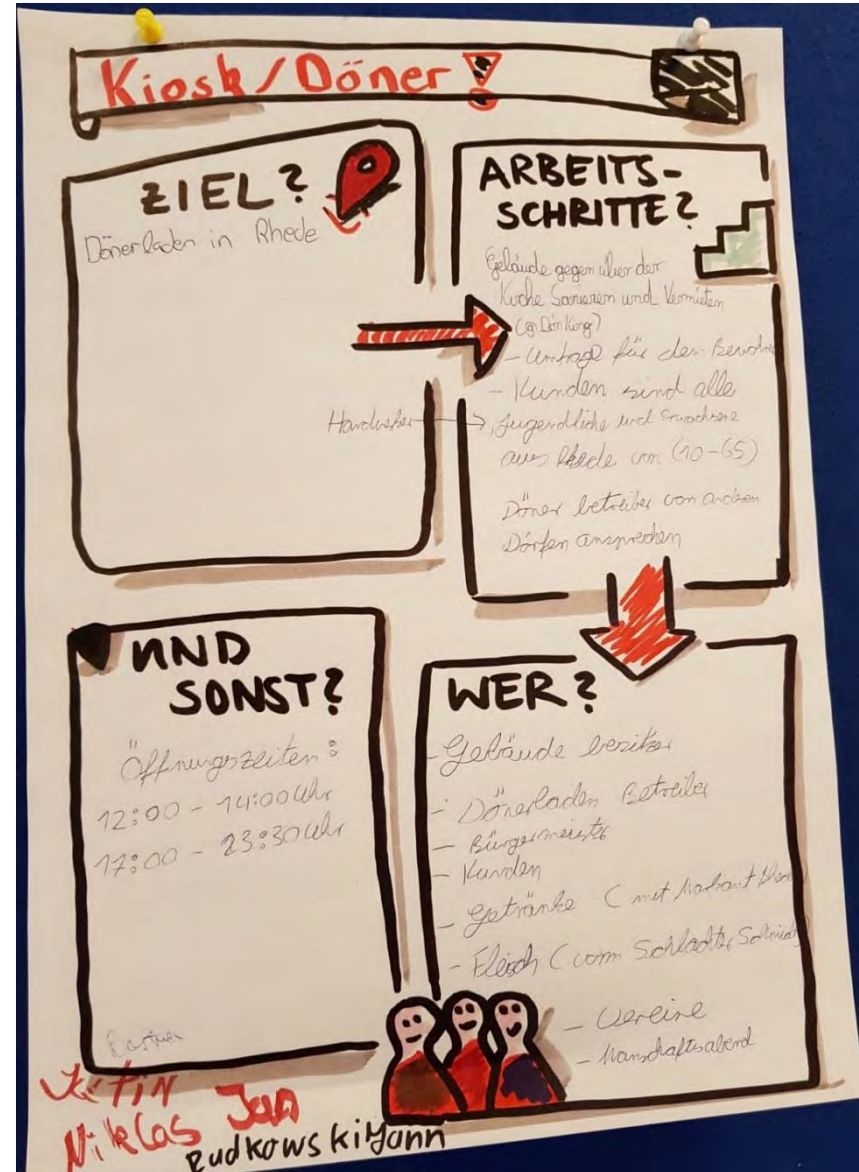 Kiosk / Döner
ZIEL?
Dönerladen in Rhede
ARBEITS-
SCHRITTE?
Gebäude gegenüber der
Kirche Sanieren und Vermieten
- Umfrage für den Bewohner
- Kunden sind alle
Handwerker → Jugendliche und Erwachsene
aus Rhede von (10-65)
Döner betreiber von anderen
Dörfen ansprechen
UND
SONST?
Öffnungszeiten:
12:00 - 14:00 Uhr
17:00 - 23:30 Uhr
WER?
- Gebäude besitzer
- Dönerladen Betreiber
- Bürgermeister
- Kunden
- Getränke ( mit Markant
- Fleisch ( vom Schlachter Schmidt)
- Vereine
- Manschaftsabend
Niklas Jan
Rudkowski Yann